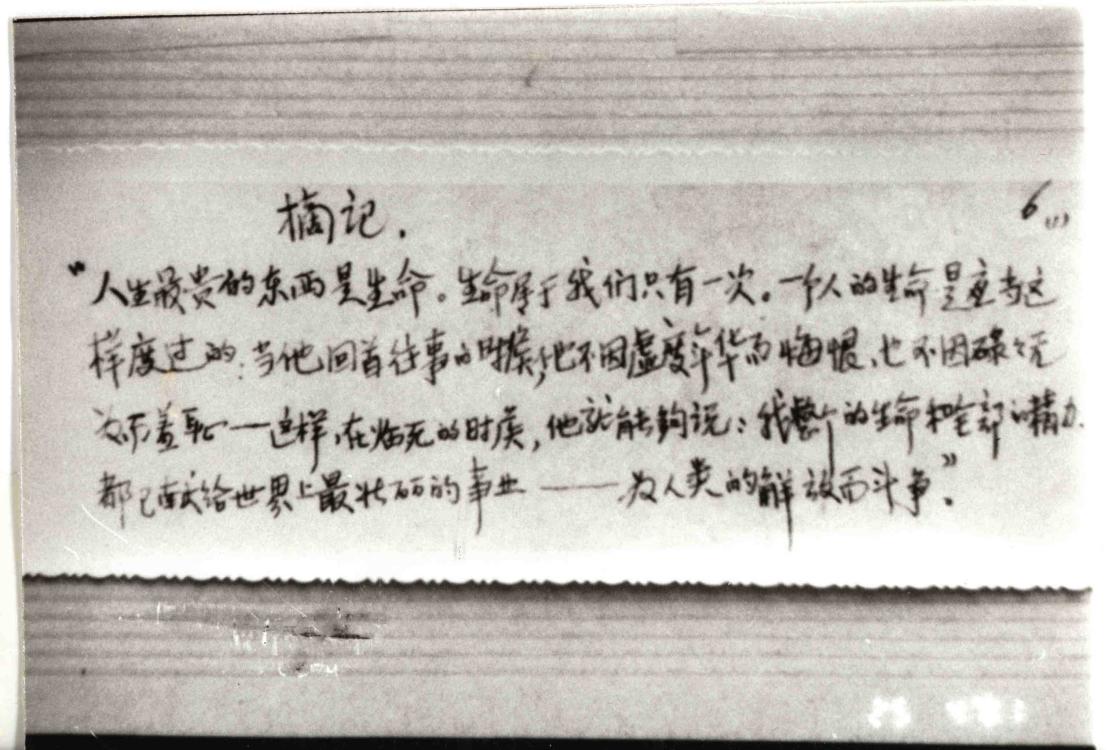 摘记.
6 (1)
“人生最贵的东西是生命。生命属于我们只有一次。一个人的生命是应当这
样度过的:当他回首往事的时候,他不因虚度年华而悔恨、也不因碌々无
为而羞耻——这样,在临死的时候,他就能够说:我整个的生命和全部的精力.
都已献给世界上最壮丽的事业——为人类的解放而斗争”。